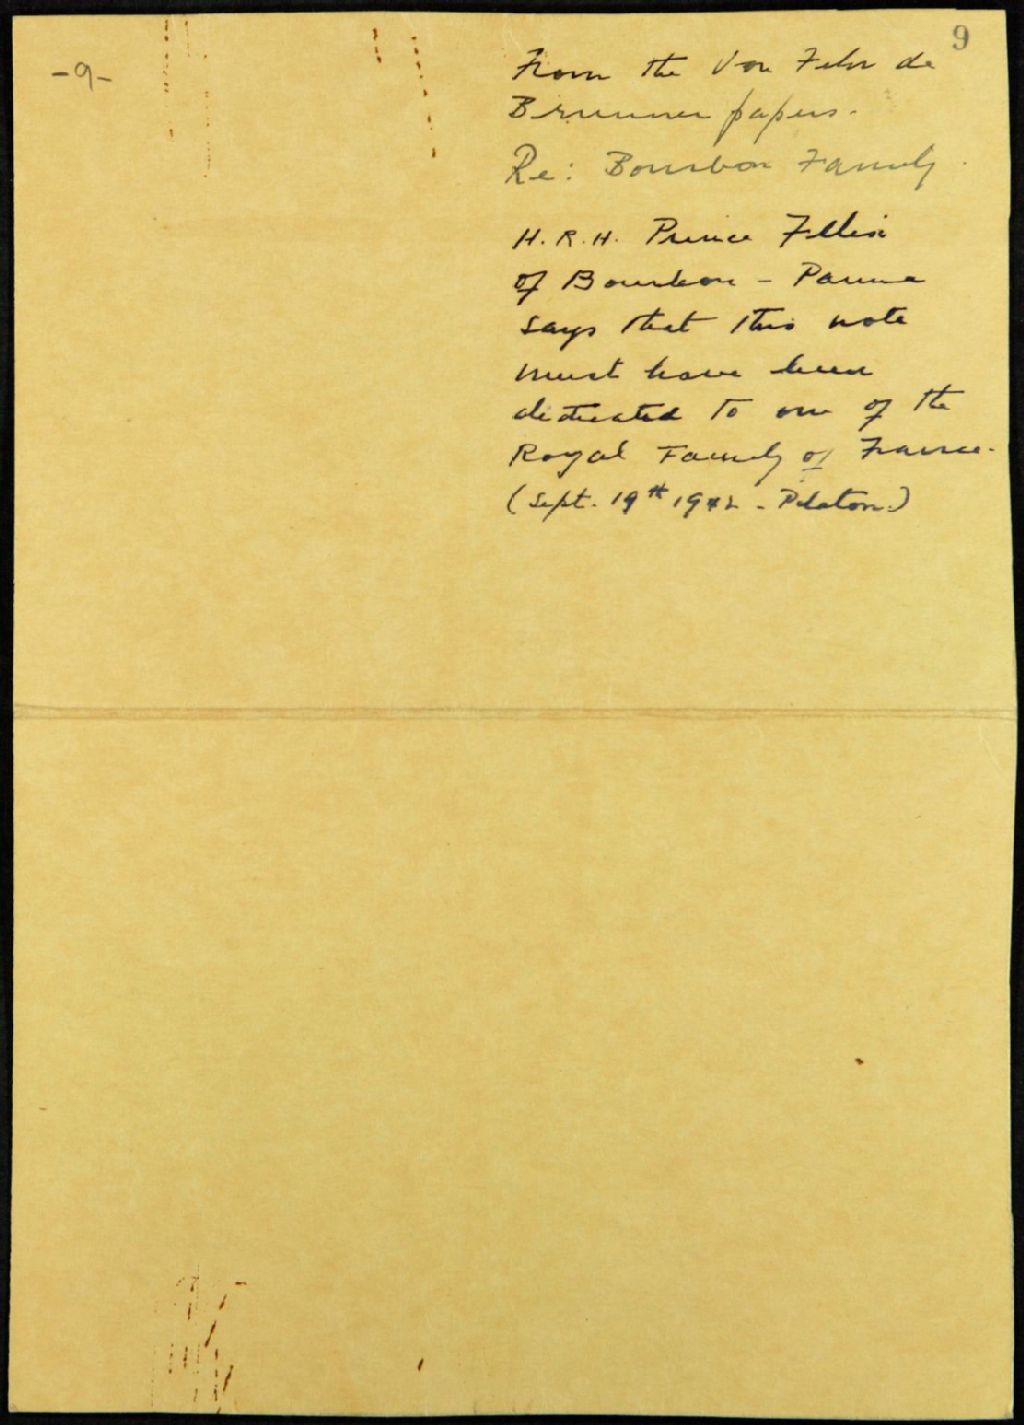 9
-9-
From the Von Fehr de
Brunner papers.
Re: Bourbon Family.
H.R.H. Prince Felix
of Bourbon - Parma
says that this note
must have been
dedicated to one of the
Royal Family of France.
(Sept. 19th 1942 -